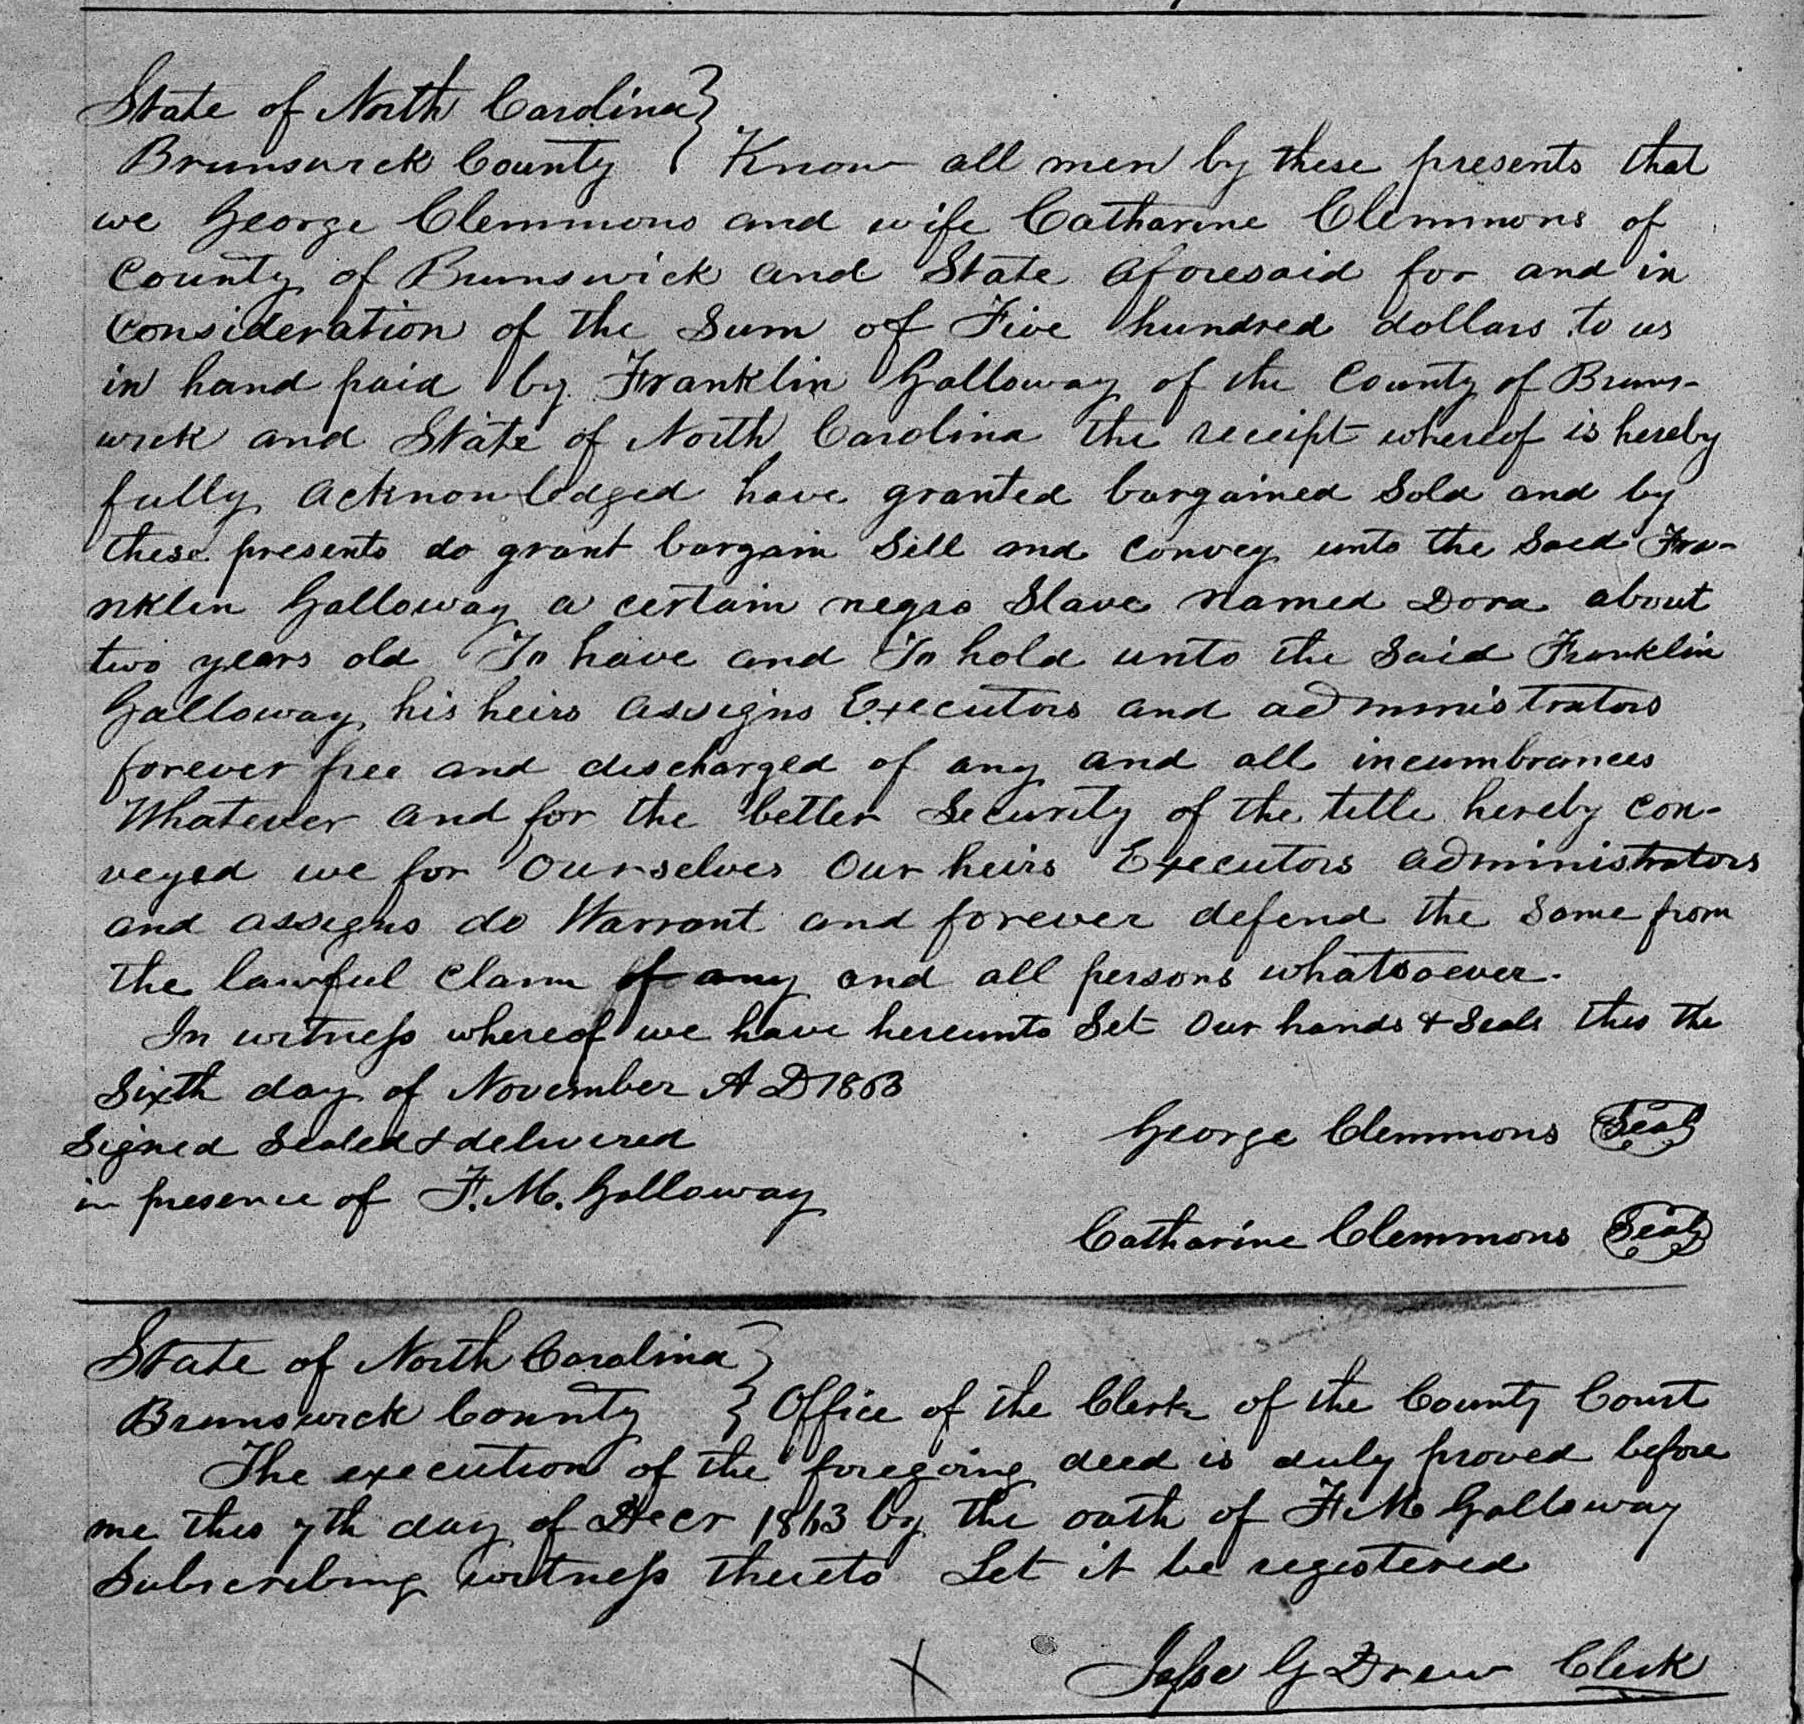 State of North Carolina }
Brunswick County } Know all men by these presents that
we George Clemmons and wife Catharine Clemmons of
County of Brunswick and State aforesaid for and in
Consideration of the Sum of Five hundred dollars to us
in hand paid by Franklin Galloway of the County of Bruns-
wick and State of North Carolina the receipt whereof is hereby
fully acknowledged have granted bargained Sold and by
these presents do grant bargain Sell and Convey unto the Said Fra-
nklin Galloway a certain negro Slave named Dora about
two years old To have and To hold unto the Said Franklin
Galloway his heirs assigns Executors and administrators
forever free and discharged of any and all incumbrances
Whatever and for the better Security of the title hereby con-
veyed we for Ourselves Our heirs Executors administrators
and assigns do Warrant and forever defend the Same from
the lawful Claim of any and all persons whatsoever.
In witness whereof we have hereunto Set Our hands & Seals this the
Sixth day of November A D 1863
Signed Sealed & delivered
in presence of F. M. Galloway
George Clemmons Seal
Catharine Clemmons Seal
State of North Carolina }
Brunswick County } Office of the Clerk of the County Court
The execution of the foregoing deed is duly proved before
me this 7th day of Decr 1863 by the oath of F. M Galloway
Subscribing witness thereto Let it be registered
Jesse G Drew Clerk